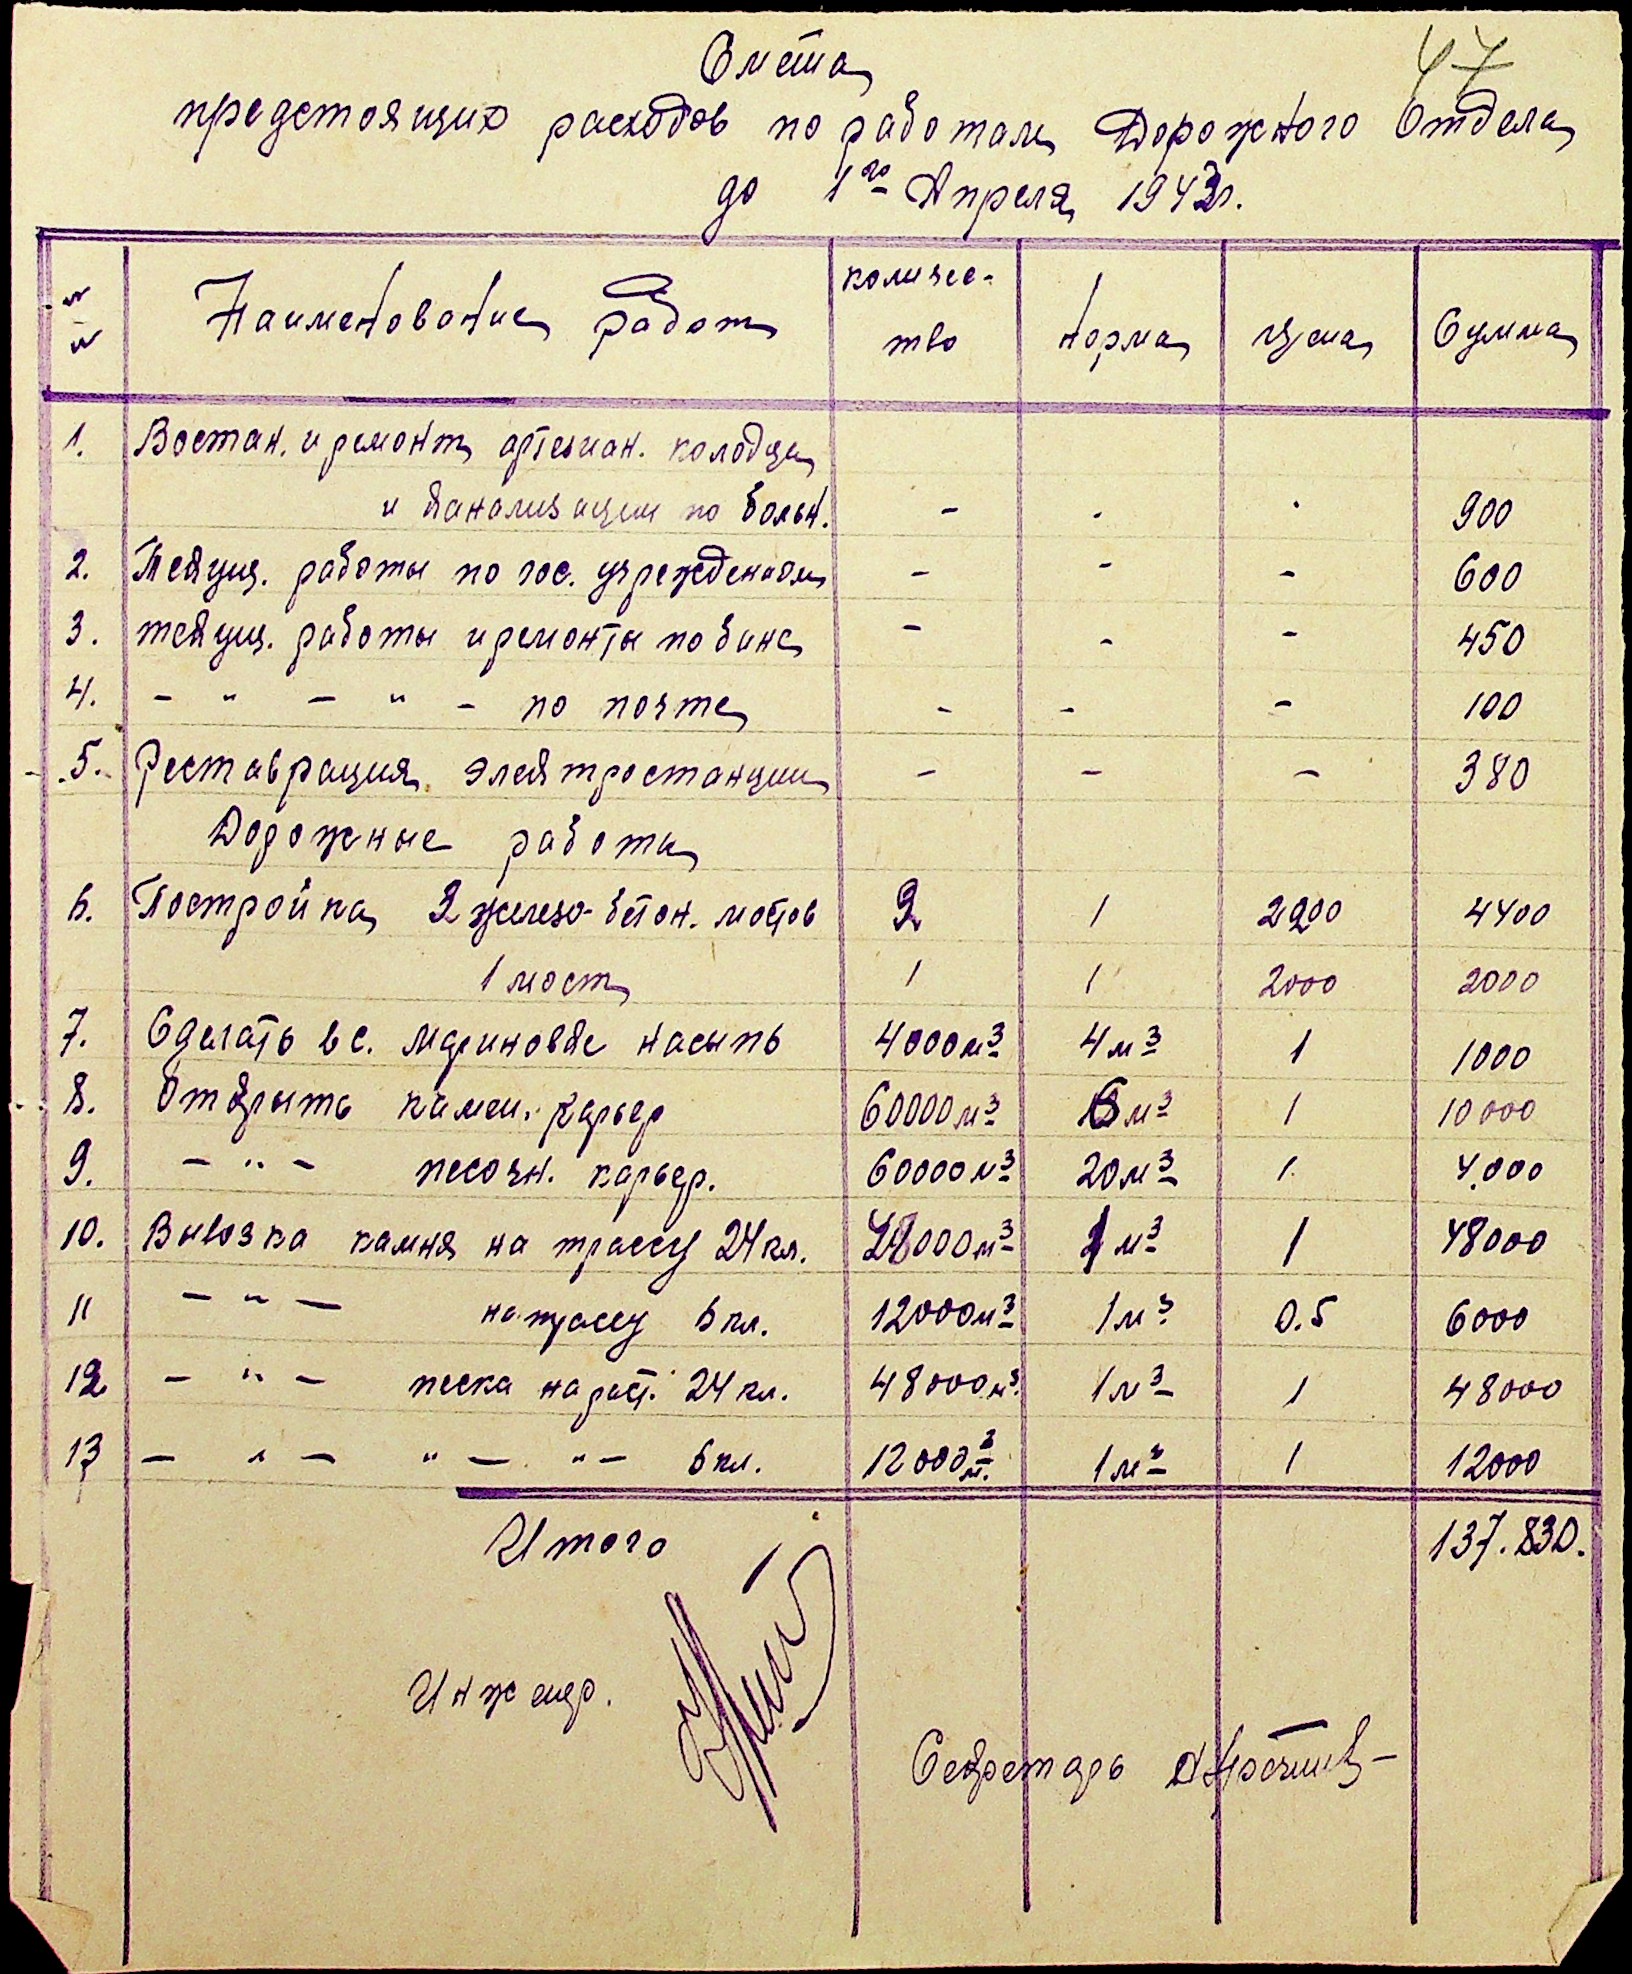 47
Смета
предстоящих расходов по работам Дорожного Отдела
до 1го Апреля 1943г.
№ № Наименование работ количес-тво норма цена Сумма
1. Востан. и ремонт артезиан. колодца
и канализации по больн. - - - 900
2. Текущ. работы по гос. учреждениям - - - 600
3. текущ. работы и ремонты по бане - - - 450
4. - " - " - по почте - - - 100
5. Реставрация электростанции - - - 380
Дорожные работы
6. Постройка 2 железо-бетон. мостов 2 1 2200 4400
1 мост 1 1 2000 2000
7. Сделать в с. Мариновке насыпь 4000м3 4м3 1 1000
8. Открыть камен. карьер 60000м3 6м3 1 10000
9. - " - песочн. карьер. 60000м3 20м3 1 4.000
10. Вывозка камня на трассу 24 кл. 48000м3 1м3 1 48000
11 - " - на трассу 6 кл. 12000м3 1м3 0.5 6000
12 - " - песка на раст. 24 кл. 48000м3 1м3 1 48000
13 - " - " - " - 6 кл. 12000м3 1м3 1 12000
Итого 137.830.
Инженер.
Секретарь